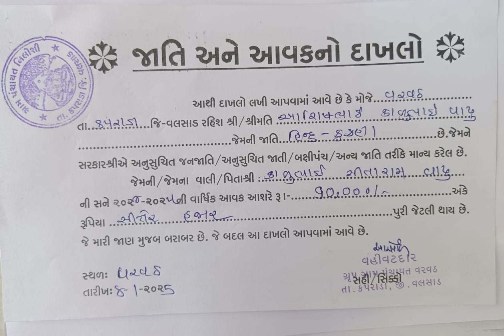 જાતિ અને આવકનો દાખલો
આથી દાખલો લખી આપવામાં આવે છે કે મોજે વરવઠ
તા. કપરાડા જિ-વલસાડ રહિશ શ્રી/શ્રીમતિ
જેમની જાતિ હિન્દુ - છે.જેમને
સરકારશ્રીએ અનુસુચિત જનજાતિ/અનુસુચિત જાતી/બક્ષીપંચ/અન્ય જાતિ તરીકે માન્ય કરેલ છે.
જેમની/જેમના વાલી/પિતાશ્રી
ની સને ૨૦૨૪-૨૦૨૫ની વાર્ષિક આવક આશરે રૂા- ૭૦,૦૦૦/- અંકે
રૂપિયા સીતેર હજાર પુરી જેટલી થાય છે.
જે મારી જાણ મુજબ બરાબર છે. જે બદલ આ દાખલો આપવામાં આવે છે.
વહીવટદાર
સ્થળ: વરવઠ
ગ્રુપ ગ્રામ પંચાયત વરવઠ
સહી/સિક્કો
તારીખ: ૨૦૨૫
તા. કપરાડા, જી. વલસાડ